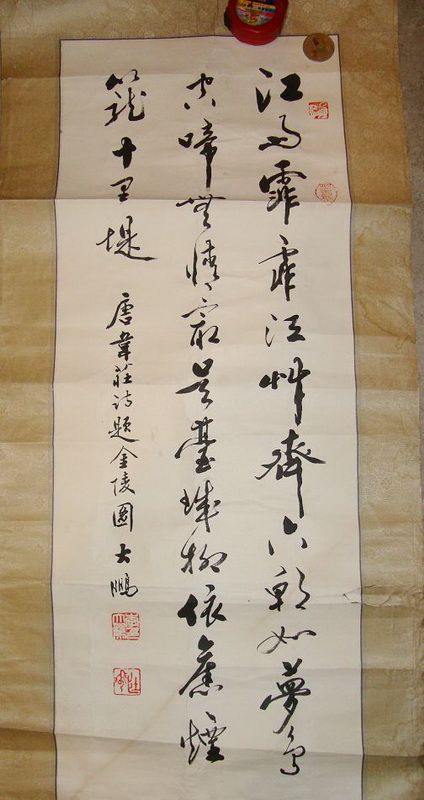 江雨霏霏江艸齊六朝如夢鳥
空啼無情最是臺城柳依舊煙
籠十里堤
唐韋莊詩題金陵圖 大鵬